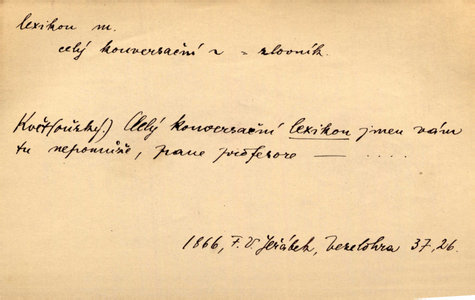 lexikon m.
celý konversační ~ = slovník.
Květ(oušský.) Celý konversační lexikon jmen vám
tu nepomůže, pane professore — . . . .
1866, F. V Jeřábek, Veselohra 37, 26.